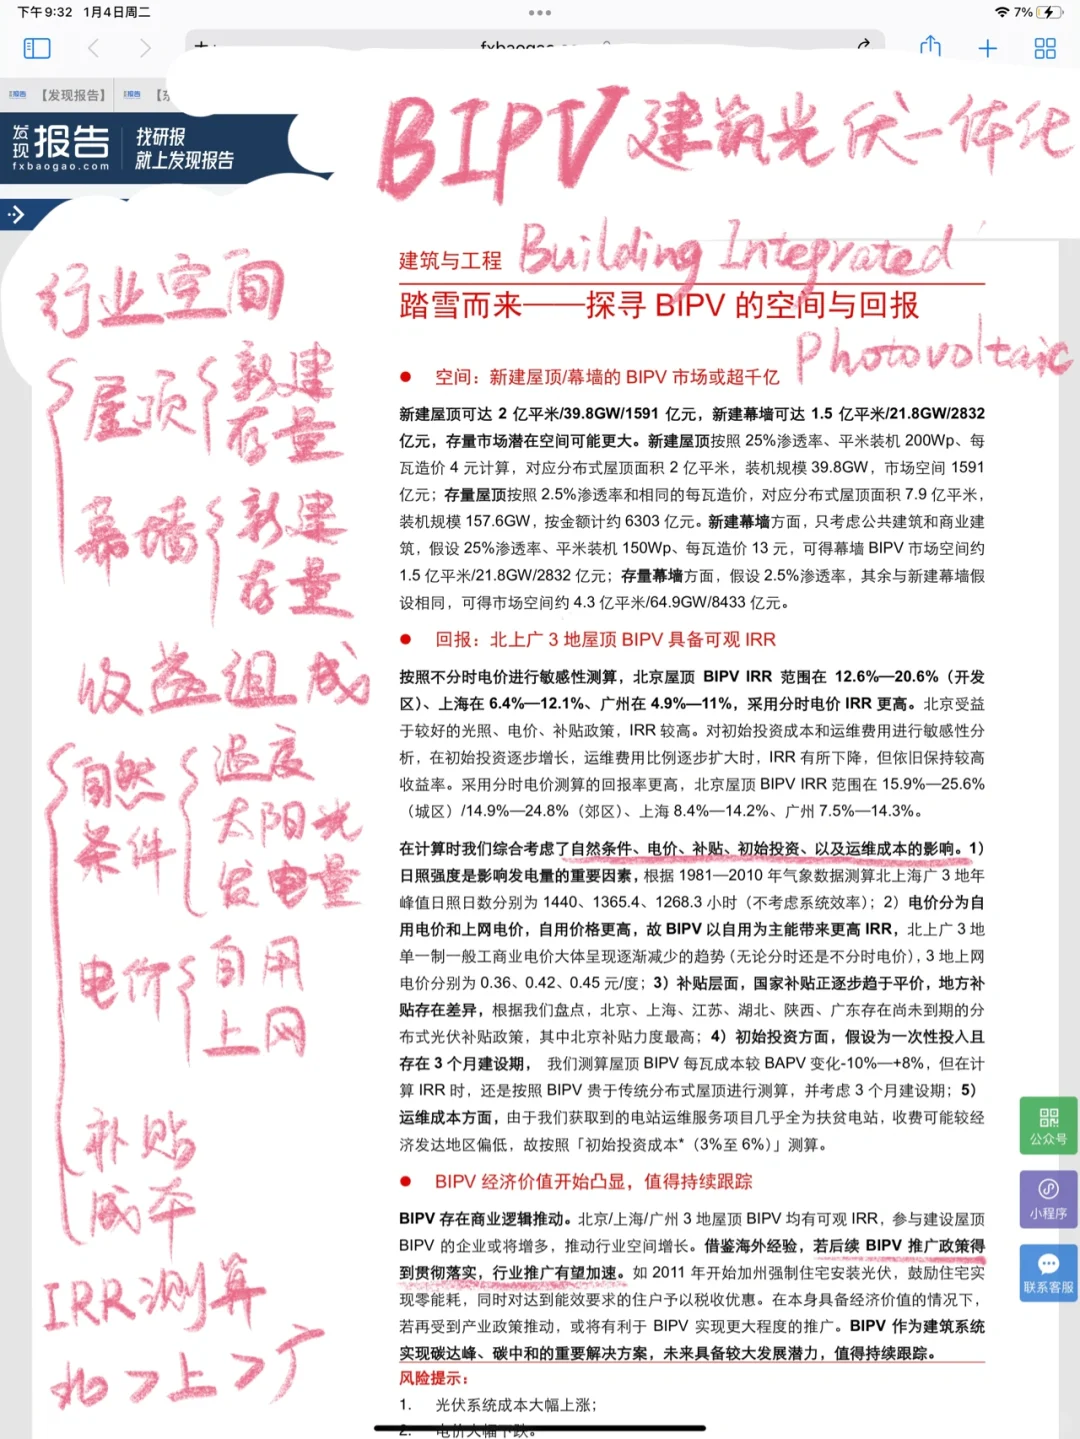 下午9:32 1月4日周二
7%
【发现报告】
发现报告
找研报
就上发现报告
fxbaogao.com
BIPV 建筑光伏一体化
Building Integrated
Photovoltaic
行业空间
屋顶 新建
存量
幕墙 新建
存量
收益组成
自然条件 温度
太阳光
发电量
电价 自用
上网
补贴
成本
IRR测算
北>上>广
建筑与工程
踏雪而来——探寻 BIPV 的空间与回报
● 空间：新建屋顶/幕墙的 BIPV 市场或超千亿
新建屋顶可达 2 亿平米/39.8GW/1591 亿元，新建幕墙可达 1.5 亿平米/21.8GW/2832
亿元，存量市场潜在空间可能更大。新建屋顶按照 25%渗透率、平米装机 200Wp、每
瓦造价 4 元计算，对应分布式屋顶面积 2 亿平米，装机规模 39.8GW，市场空间 1591
亿元；存量屋顶按照 2.5%渗透率和相同的每瓦造价，对应分布式屋顶面积 7.9 亿平米，
装机规模 157.6GW，按金额计约 6303 亿元。新建幕墙方面，只考虑公共建筑和商业建
筑，假设 25%渗透率、平米装机 150Wp、每瓦造价 13 元，可得幕墙 BIPV 市场空间约
1.5 亿平米/21.8GW/2832 亿元；存量幕墙方面，假设 2.5%渗透率，其余与新建幕墙假
设相同，可得市场空间约 4.3 亿平米/64.9GW/8433 亿元。
● 回报：北上广 3 地屋顶 BIPV 具备可观 IRR
按照不分时电价进行敏感性测算，北京屋顶 BIPV IRR 范围在 12.6%—20.6%（开发
区）、上海在 6.4%—12.1%、广州在 4.9%—11%，采用分时电价 IRR 更高。北京受益
于较好的光照、电价、补贴政策，IRR 较高。对初始投资成本和运维费用进行敏感性分
析，在初始投资逐步增长，运维费用比例逐步扩大时，IRR 有所下降，但依旧保持较高
收益率。采用分时电价测算的回报率更高，北京屋顶 BIPV IRR 范围在 15.9%—25.6%
（城区）/14.9%—24.8%（郊区）、上海 8.4%—14.2%、广州 7.5%—14.3%。
在计算时我们综合考虑了自然条件、电价、补贴、初始投资、以及运维成本的影响。1）
日照强度是影响发电量的重要因素，根据 1981—2010 年气象数据测算北上海广 3 地年
峰值日照日数分别为 1440、1365.4、1268.3 小时（不考虑系统效率）；2）电价分为自
用电价和上网电价，自用价格更高，故 BIPV 以自用为主能带来更高 IRR，北上广 3 地
单一制一般工商业电价大体呈现逐渐减少的趋势（无论分时还是不分时电价），3 地上网
电价分别为 0.36、0.42、0.45 元/度；3）补贴层面，国家补贴正逐步趋于平价，地方补
贴存在差异，根据我们盘点，北京、上海、江苏、湖北、陕西、广东存在尚未到期的分
布式光伏补贴政策，其中北京补贴力度最高；4）初始投资方面，假设为一次性投入且
存在 3 个月建设期， 我们测算屋顶 BIPV 每瓦成本较 BAPV 变化-10%—+8%，但在计
算 IRR 时，还是按照 BIPV 贵于传统分布式屋顶进行测算，并考虑 3 个月建设期；5）
运维成本方面，由于我们获取到的电站运维服务项目几乎全为扶贫电站，收费可能较经
济发达地区偏低，故按照「初始投资成本*（3%至 6%）」测算。
● BIPV 经济价值开始凸显，值得持续跟踪
BIPV 存在商业逻辑推动。北京/上海/广州 3 地屋顶 BIPV 均有可观 IRR，参与建设屋顶
BIPV 的企业或将增多，推动行业空间增长。借鉴海外经验，若后续 BIPV 推广政策得
到贯彻落实，行业推广有望加速。如 2011 年开始加州强制住宅安装光伏，鼓励住宅实
现零能耗，同时对达到能效要求的住户予以税收优惠。在本身具备经济价值的情况下，
若再受到产业政策推动，或将有利于 BIPV 实现更大程度的推广。BIPV 作为建筑系统
实现碳达峰、碳中和的重要解决方案，未来具备较大发展潜力，值得持续跟踪。
风险提示：
1. 光伏系统成本大幅上涨；
2. 电价大幅下跌。
公众号
小程序
联系客服